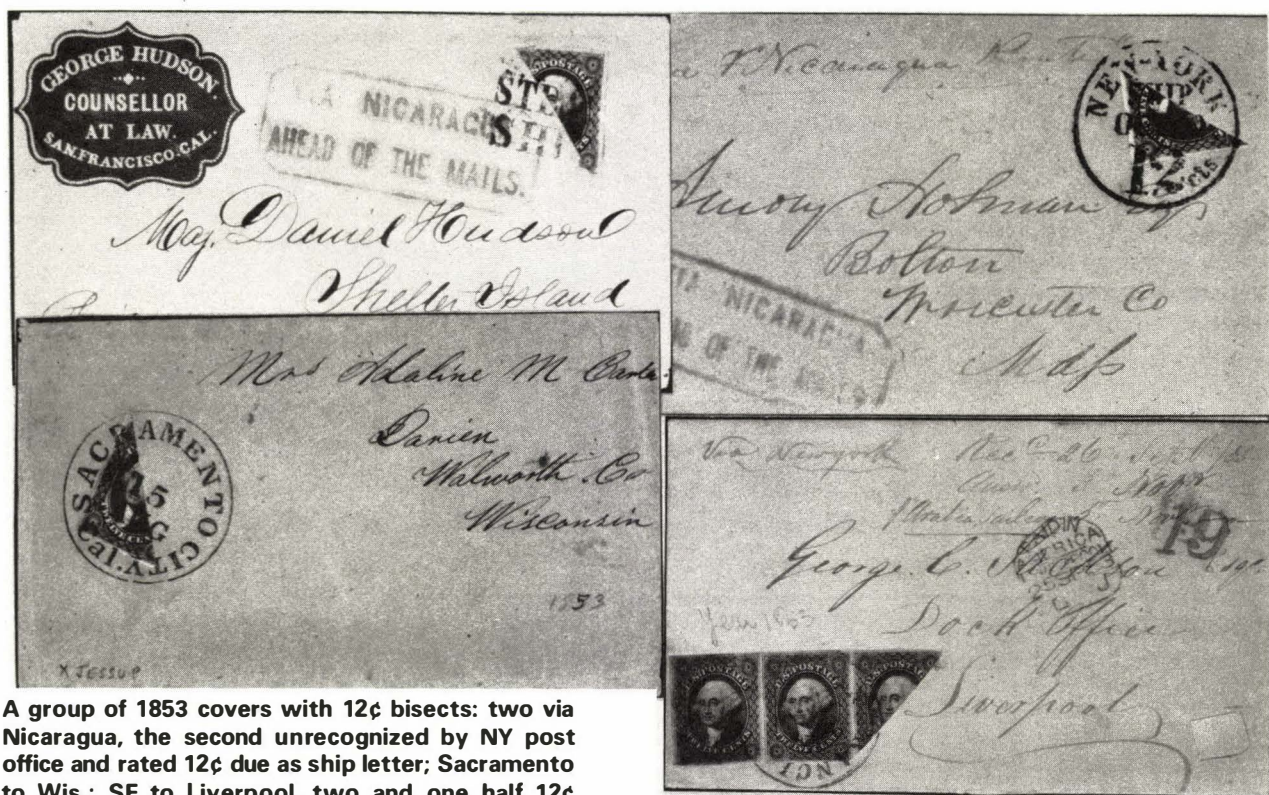 GEORGE HUDSON.
COUNSELLOR
AT LAW.
SAN FRANCISCO. CAL.
VIA NICARAGUA
AHEAD OF THE MAILS.
STE
SHI
POSTAGE
Maj. Daniel Hudson
Shelter Island
Via Nicaragua
NEW-YORK
SHIP
12
cts
Holman
Bolton
Worcester Co
VIA NICARAGUA
OF THE MAILS
Mrs Adaline M
Darien
Walworth. Co
Wisconsin
SACRAMENTO CITY
Cal.
15
1853
X JESSUP
Via Newyork
19
George. C.
Dock Office
Liverpool
Year 1853
U.S. POSTAGE U.S. POSTAGE
A group of 1853 covers with 12¢ bisects: two via
Nicaragua, the second unrecognized by NY post
office and rated 12¢ due as ship letter; Sacramento
to Wis.; SF to Liverpool, two and one half 12¢